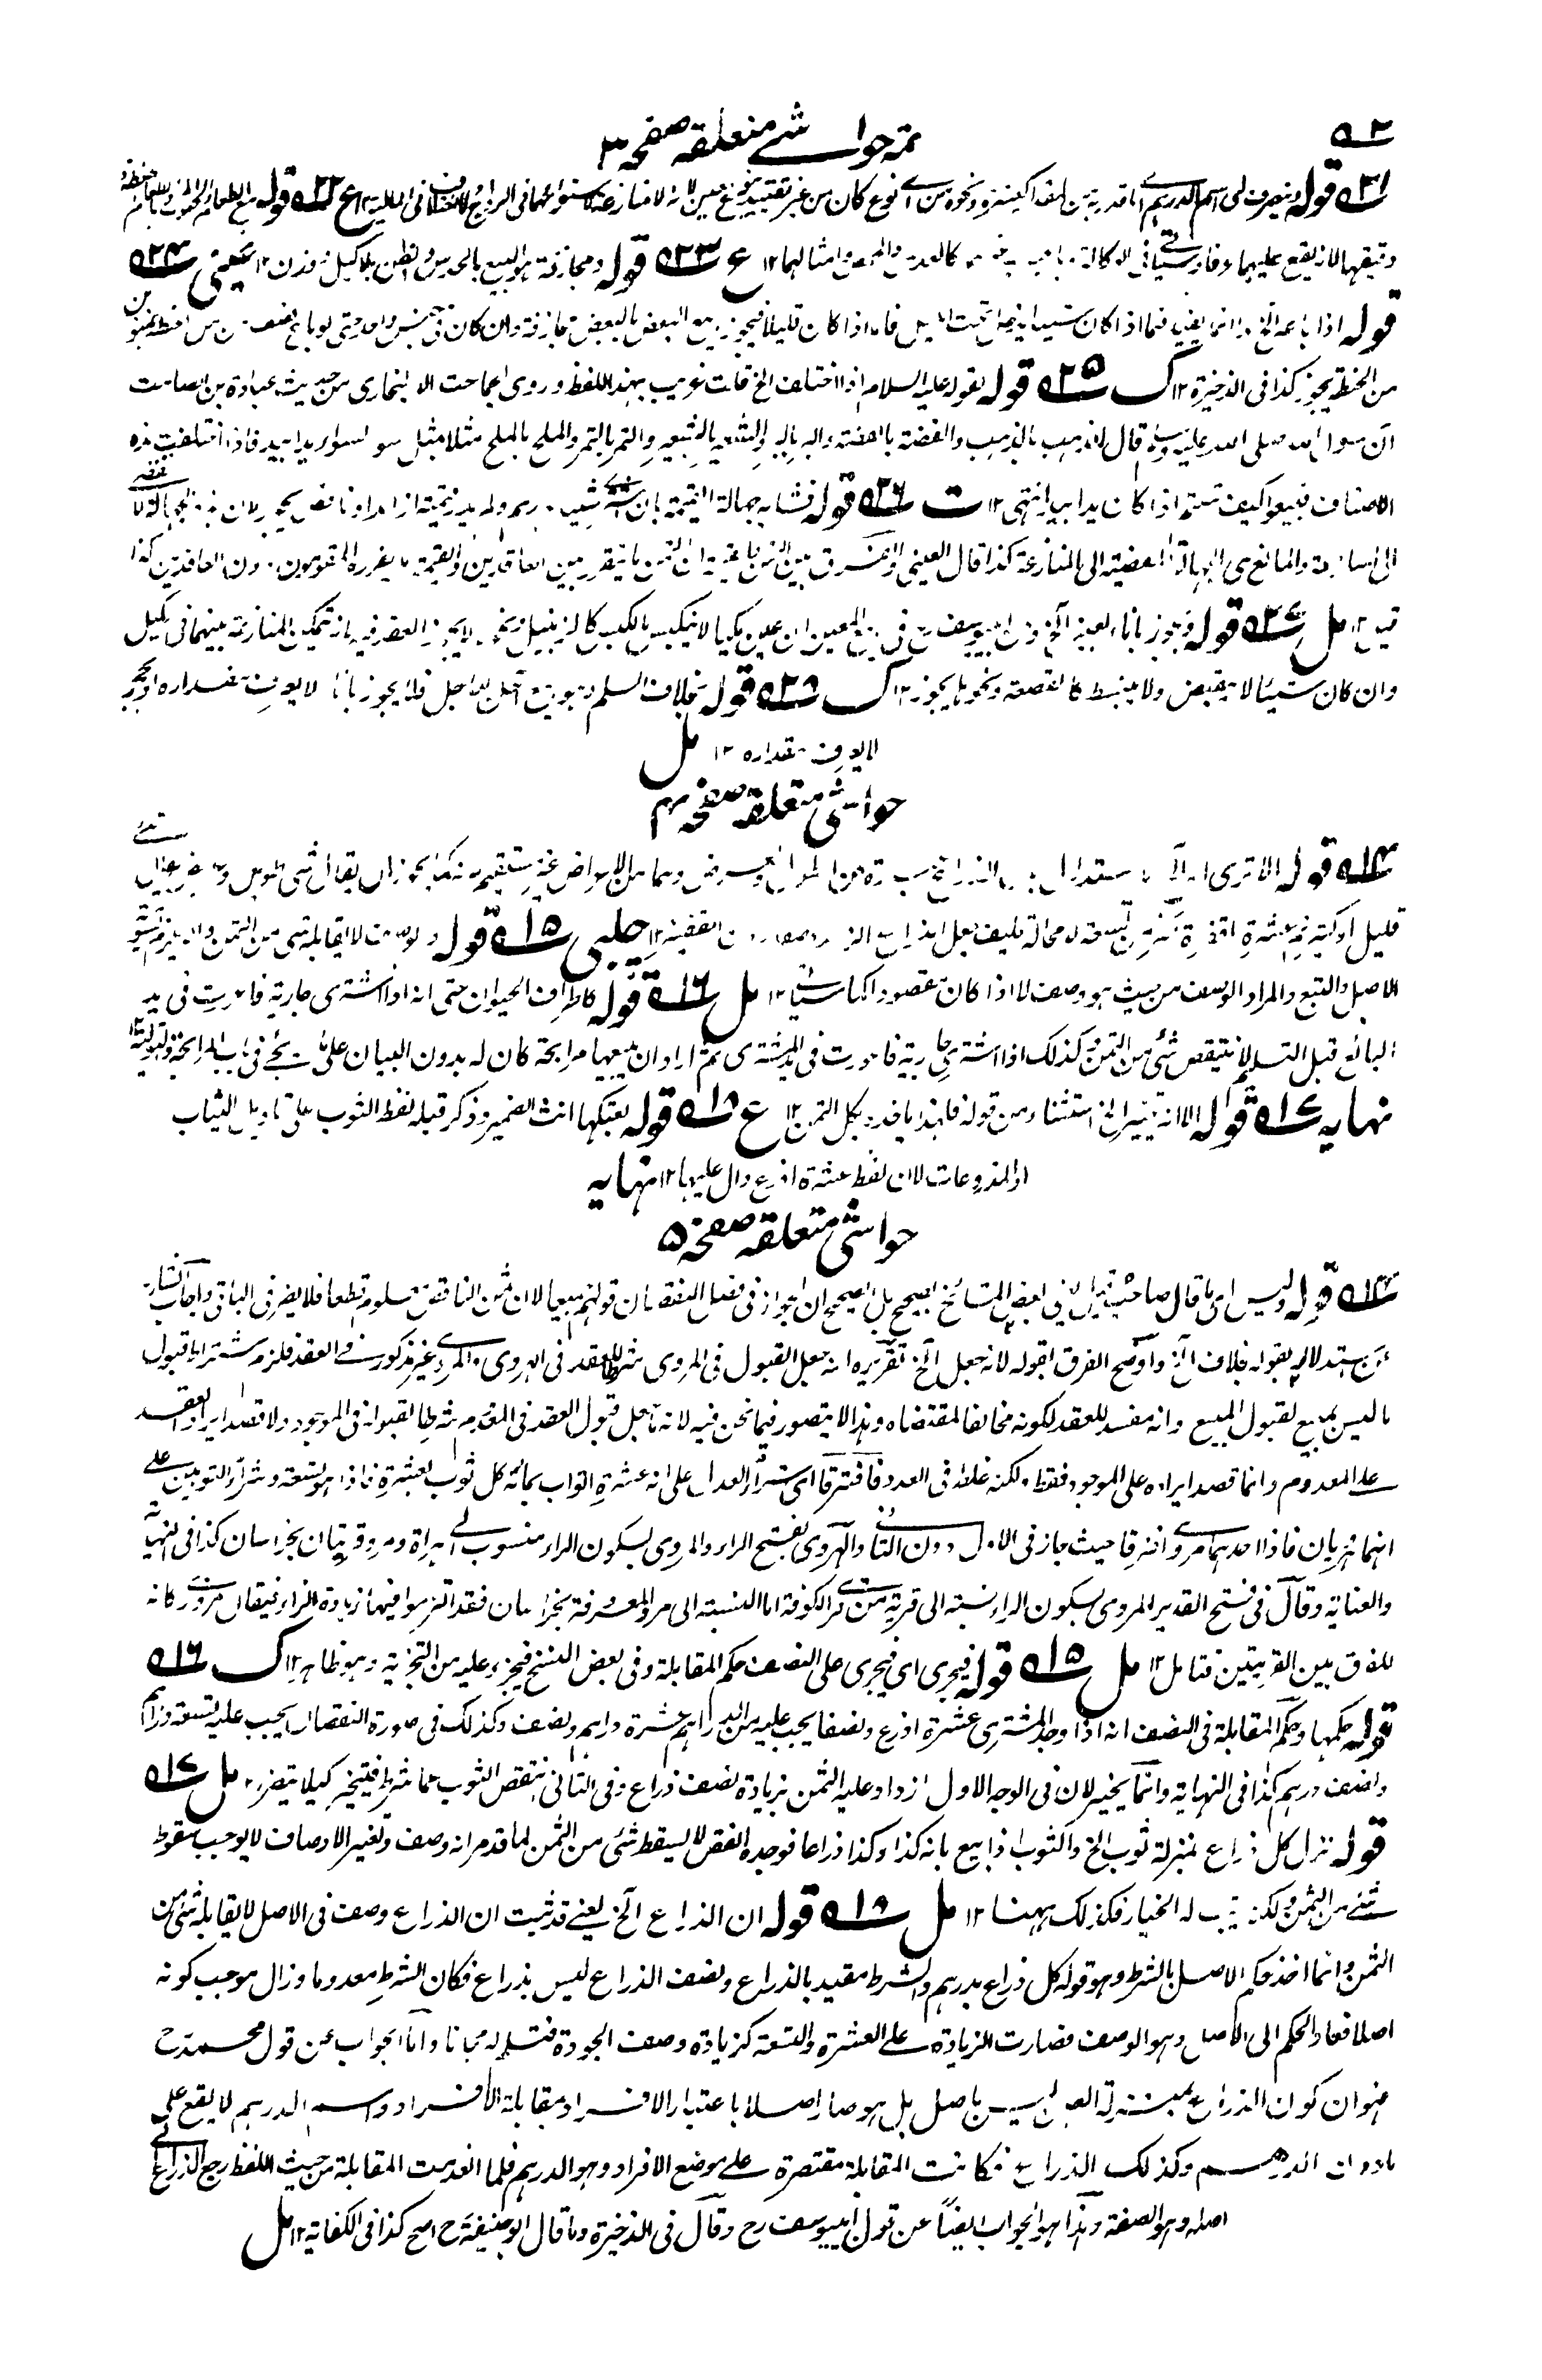 ٥٢
تتمہ حواشی متعلقہ صفحہ ٣
٥٢١ قوله وينصرف الى اسم الدرهم من اى نوع كان من غير تقييد بنوع معين لانه لا منازعة لاستوائهما فى الرواج ٥٢٢ قوله بيع الطعام
دقيقها لانه يقع عليهما عرفا وسياتى فى الوكالة ١٢ ع ٥٢٣ قوله ومجازفة هو البيع بالحدس والظن بلا كيل ووزن ١٢ عينى ٥٢٤
قوله اذا باعه الخ فيما اذا كان شيئا يدخل تحت الكيل فاما اذا كان قليلا فيجوز بيع البعض بالبعض مجازفة وان كان من جنس واحد حتى لو باع
من الحنطة يجوز كذا فى الذخيرة ١٢ ك ٥٢٥ قوله لقوله عليه السلام اذا اختلف الخ قلت غريب بهذا اللفظ وروى الجماعة الا البخارى من حديث عبادة بن الصامت
ان رسول الله صلى الله عليه وسلم قال الذهب بالذهب والفضة بالفضة والبر بالبر والشعير بالشعير والتمر بالتمر والملح بالملح مثلا بمثل سواء بسواء يدا بيد فاذا اختلفت هذه
الاصناف فبيعوا كيف شئتم اذا كان يدا بيد انتهى ١٢ ت ٥٢٦ قوله فشابه جهالة القيمة بان
والمانع هى الجهالة المفضية الى المنازعة كذا قال العينى والفرق بين الثمن والقيمة ان الثمن ما يتقرر بين العاقدين والقيمة ما يقرره المقومون دون العاقدين كذا
قيل ١٢ مل ٥٢٧ قوله ويجوز باناء بعينه الخ وعن ابى يوسف رح فى المعين ان عين مكيالا ينكبس بالكبس كالزنبيل ونحوه لا يجوز العقد فيه لانه تتمكن المنازعة بينهما فى الكيل
وان كان شيئا لا ينقبض ولا ينبسط كالقصعة ونحوها يجوز ١٢ ك ٥٢٨ قوله بخلاف السلم فلا يجوز باناء لا يعرف مقداره او حجر
لا يعرف مقداره ١٢ مل
حواشی متعلقہ صفحہ ٤
٥١٤ قوله الا ترى انه الخ
قليل او كثير ١٢ چلپى ٥١٥ قوله والوصف لا يقابله شئ من الثمن
الاصل والتبع والمراد الوصف من حيث هو وصف لا اذا كان مقصودا كما سياتى ١٢ مل ٥١٦ قوله كاطراف الحيوان حتى انه اذا اشترى جارية فاعورت فى يد
البائع قبل التسليم لا ينتقص شئ من الثمن وكذلك اذا اشترى جارية فاعورت فى يد المشترى ثم اراد ان يبيعها مرابحة كان له بدون البيان على ما يجئ فى باب المرابحة والتولية ١٢
نهايه ٥١٧ قوله الا انه يتخير الخ استثناء من قوله فاخذها بكل الثمن ١٢ ع ٥١٨ قوله بعتكها انث الضمير وذكر قبله لفظ الثوب على تاويل الثياب
او المذروعات لان لفظ عشرة اذرع دال عليها ١٢ نهايه
حواشی متعلقہ صفحہ ٥
٥١٤ قوله وليس اى ما قال صاحب بعض المشائخ بصحيح بل الصحيح ان الجواز فى فصل النقصان قولهم جميعا لان ثمن الناقص معلوم قطعا فلا يضر فى الباقى واجاب الشارح
عن استدلاله بقوله بخلاف الخ واوضح الفرق بقوله لانه جعل الخ تقريره انه جعل القبول فى المروى شرطا للعقد فى الهروى والمروى غير مذكور فى العقد فلزم اشتراط قبول
ما ليس بمبيع لقبول المبيع وانه مفسد للعقد لكونه مخالفا لمقتضاه وهذا لا يتصور فيما نحن فيه لانه ما جعل قبول العقد فى المعدوم شرطا لقبوله فى الموجود ولا قصد ايراد العقد
على المعدوم وانما قصد ايراده على الموجود فقط ولكنه غلط فى العدد فافترقا اى شراء العدل على انه عشرة اثواب بمائة كل ثوب بعشرة فاذا هو تسعة وشراء الثوبين على
انهما هرويان فاذا احدهما مروى افترقا حيث جاز فى الاول دون الثانى والهروى بفتح الراء والمروى بسكون الراء منسوب الى هراة ومرو قريتان بخراسان كذا فى النهاية
والعناية وقال فى فتح القدير المروى بسكون الراء نسبة الى قرية من قرى الكوفة اما النسبة الى مرو المعروفة بخراسان فقد التزموا فيها زيادة الزاء فيقال مروزى وكانه
للفرق بين القريتين فتامل ١٢ مل ٥١٥ قوله فيجرى اى فيجرى على النصف حكم المقابلة وفى بعض النسخ فيجزى عليه من التجزية وهو ظاهر ١٢ ك ٥١٦
قوله حكمها وحكم المقابلة فى النصف انه اذا وجد المشترى عشرة اذرع ونصفا يجب عليه من الدراهم عشرة دراهم ونصف وكذلك فى صورة النقصان يجب عليه تسعة دراهم
ونصف درهم كذا فى النهاية وانما يخير لان فى الوجه الاول ازداد عليه الثمن بزيادة نصف ذراع وفى الثانى ينتقص الثوب عما شرط فيتخير كيلا يتضرر ١٢ مل ٥١٧
قوله نزل كل ذراع بمنزلة ثوب الخ والثوب اذا بيع بانه كذا وكذا ذراعا فوجده انقص لا يسقط شئ من الثمن لما قد مر انه وصف وتغير الاوصاف لا يوجب سقوط
شئ من الثمن ولكن يثبت له الخيار فكذلك ههنا ١٢ مل ٥١٨ قوله ان الذراع الخ يعنى قد ثبت ان الذراع وصف فى الاصل لا يقابله شئ من
الثمن وانما اخذ حكم الاصل بالشرط وهو قوله كل ذراع بدرهم والشرط مقيد بالذراع ونصف الذراع ليس بذراع فكان الشرط معدوما وزال موجب كونه
اصلا فعاد الحكم الى الاصل وهو الوصف فصارت الزيادة على العشرة والتسعة كزيادة وصف الجودة فتسلم له مجانا واما الجواب عن قول محمد رح
فهو ان كون الذراع بمنزلة ليس باصل بل هو صار اصلا باعتبار الافراد مقابلة الافراد واسم الدرهم لا يقع على
ما دون الدرهم وكذلك الذراع فكانت المقابلة مقتصرة على موضع الافراد وهو الدرهم فلما انعدمت المقابلة من حيث اللفظ رجع الذراع الى
اصله وهو الصفة وهذا هو الجواب ايضا عن قول ابى يوسف رح وقال فى الذخيرة وما قال ابو حنيفة رح اصح كذا فى الكفاية ١٢ مل